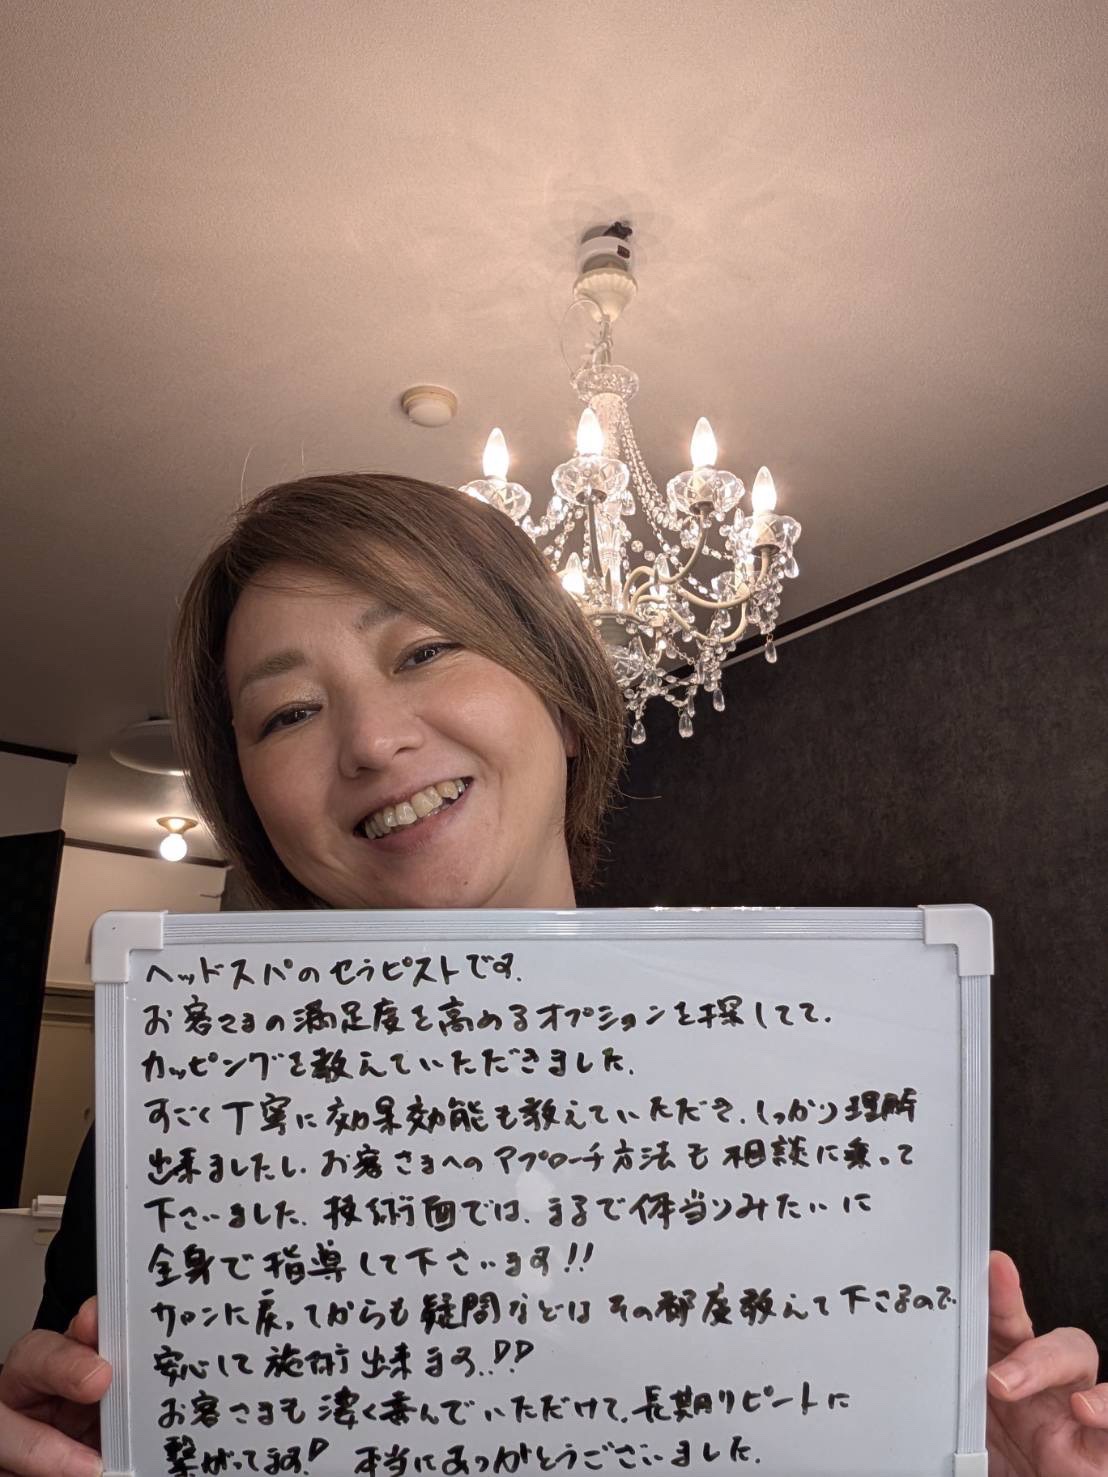 ヘッドスパのセラピストです。
お客さまの満足度を高めるオプションを探してて、
カッピングを教えていただきました。
すごく丁寧に効果効能も教えていただき、しっかり理解
出来ましたし、お客さまへのアプローチ方法も相談に乗って
下さいました。技術面では、まるで体当りみたいに
全身で指導して下さいます!!
サロンに戻ってからも疑問などはその都度教えて下さるので
安心して施術出来ます!!
お客さまも凄く喜んでいただけて、長期リピートに
繋がってます! 本当にありがとうございました。